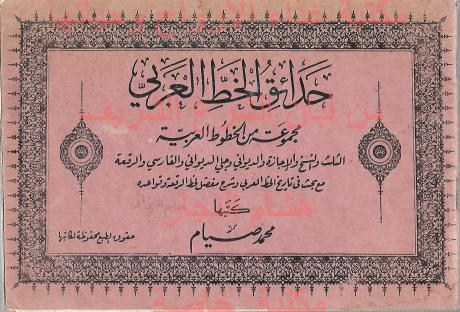 مكتبة
حدائق الخط العربي
من
الشريف
مجموعة من الخطوط العربية
الثلث والنسخ والإجازة والديواني وجلي الديواني والفارسي والرقعة
مع بحث في تاريخ الخط العربي وشرح مفصل لخط الرقعة وقواعده
هشام
كتبها
محمد صيام
حقوق الطبع محفوظة لكاتبها
مكتبة خاصة